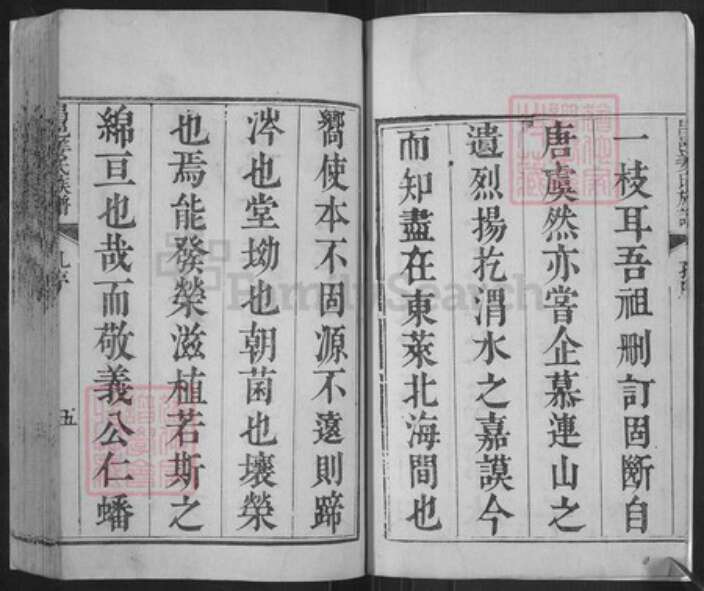 一枝耳吾祖刪訂固斷自
唐虞然亦嘗企慕連山之
遺烈揚扢渭水之嘉謨今
而知盡在東萊北海間也
嚮使本不固源不遠則蹄
涔也堂坳也朝菌也壤榮
也焉能發榮滋植若斯之
綿亘也哉而敬義公仁蟠
氏族譜
五
FamilySearch